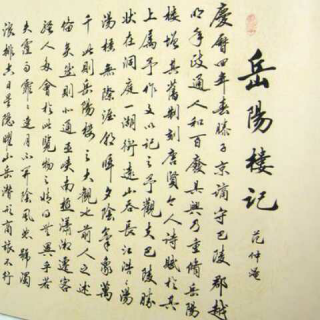 岳陽楼記
范仲淹
慶曆四年春滕子京謫守巴陵郡越
明年政通人和百廢具興乃重修岳陽
樓增其舊制刻唐賢今人詩賦於其
上属予作文以記之予觀夫巴陵勝
狀在洞庭一湖銜遠山吞長江浩浩湯
湯橫無際涯朝暉夕陰氣象萬
千此則岳陽樓之大觀也前人之述
備矣然則北通巫峽南極瀟湘遷客
騷人多會於此覽物之情得無異乎若
夫霪雨霏霏連月不開陰風怒號濁
浪排空日星隱曜山岳潛形商旅不行